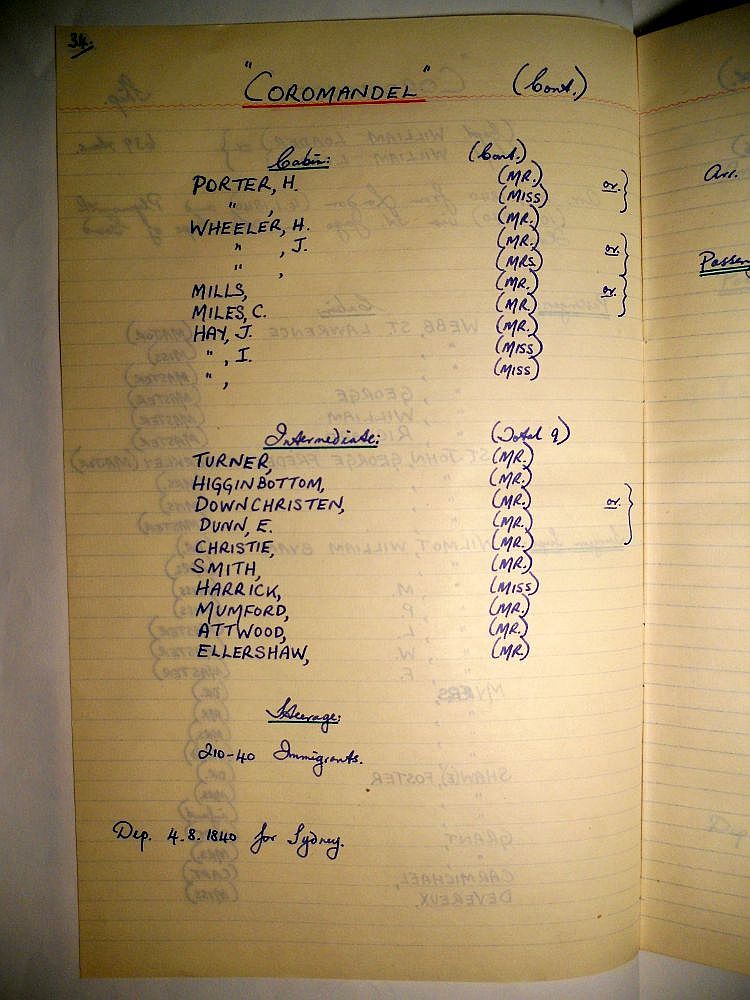 34.
"COROMANDEL" (Cont.)
Cabin: (Cont.)
PORTER, H. (MR.) or.
" , (MISS)
WHEELER, H. (MR.)
" , J. (MR.) or.
" , (MRS)
MILLS, (MR.) or.
MILES, C. (MR.)
HAY, J. (MR.)
" , I. (MISS)
" , (MISS)
Intermediate: (Total 9)
TURNER, (MR.)
HIGGINBOTTOM, (MR.)
DOWNCHRISTEN, (MR.) or.
DUNN, E. (MR.)
CHRISTIE, (MR.)
SMITH, (MR.)
HARRICK, (MISS)
MUMFORD, (MR.)
ATTWOOD, (MR.)
ELLERSHAW, (MR.)
Steerage:
210-40 Immigrants.
Dep. 4.8.1840 for Sydney.
Arr.